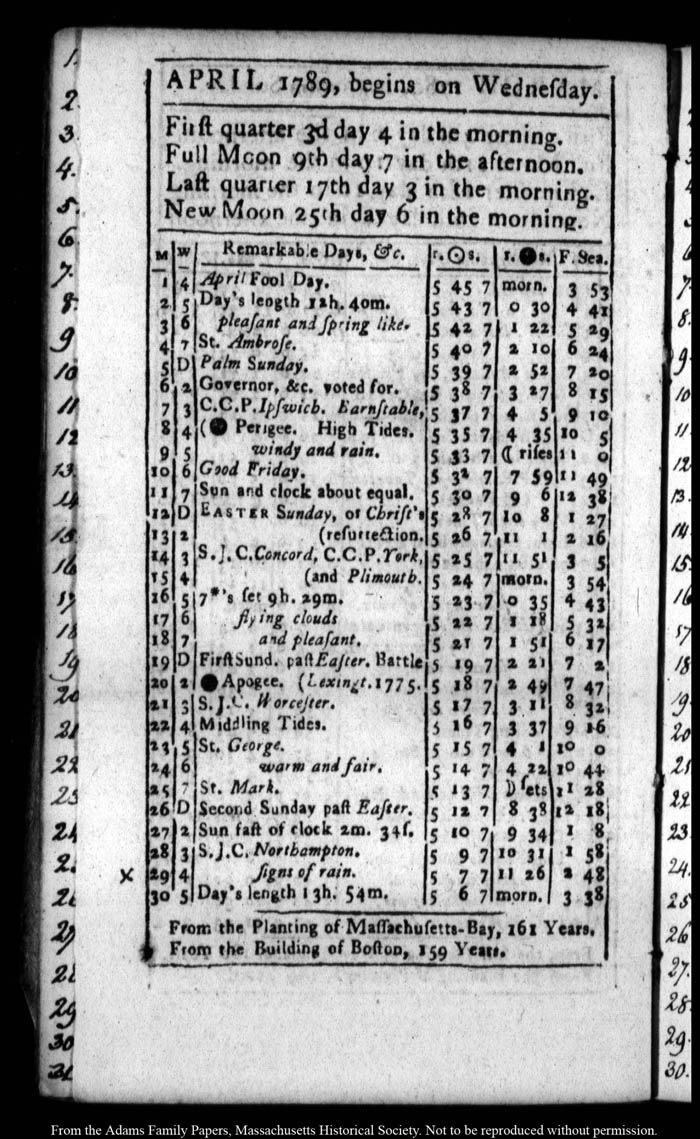 APRIL 1789, begins on Wedneſday.
Firſt quarter 3d day 4 in the morning.
Full Moon 9th day 7 in the afternoon.
Laſt quarter 17th day 3 in the morning.
New Moon 25th day 6 in the morning.
M W Remarkable Days, &c. r. ☉ s. r. ● s. F. Sea.
1 4 April Fool Day. 5 45 7 morn. 3 53
2 5 Day's length 12h. 40m. 5 43 7 0 30 4 41
3 6 pleaſant and ſpring like. 5 42 7 1 22 5 29
4 7 St. Ambroſe. 5 40 7 2 10 6 24
5 D Palm Sunday. 5 39 7 2 52 7 20
6 2 Governor, &c. voted for. 5 38 7 3 27 8 15
7 3 C.C.P. Ipſwich. Barnſtable, 5 37 7 4 5 9 10
8 4 (● Perigee. High Tides. 5 35 7 4 35 10 5
9 5 windy and rain. 5 33 7 ☾ riſes 11 0
10 6 Good Friday. 5 32 7 7 59 11 49
11 7 Sun and clock about equal. 5 30 7 9 6 12 38
12 D EASTER Sunday, or Chriſt's 5 28 7 10 8 1 27
13 2 (reſurrection. 5 26 7 11 1 2 16
14 3 S.J.C. Concord, C.C.P. York, 5 25 7 11 51 3 5
15 4 (and Plimouth. 5 24 7 morn. 3 54
16 5 7*'s ſet 9h. 29m. 5 23 7 0 35 4 43
17 6 flying clouds 5 22 7 1 18 5 32
18 7 and pleaſant. 5 21 7 1 51 6 17
19 D Firſt Sund. paſt Eaſter. Battle 5 19 7 2 21 7 2
20 2 ● Apogee. (Lexingt. 1775. 5 18 7 2 49 7 47
21 3 S.J.C. Worceſter. 5 17 7 3 11 8 32
22 4 Middling Tides. 5 16 7 3 37 9 16
23 5 St. George. 5 15 7 4 1 10 0
24 6 warm and fair. 5 14 7 4 22 10 44
25 7 St. Mark. 5 13 7 ☽ ſets 11 28
26 D Second Sunday paſt Eaſter. 5 12 7 8 38 12 18
27 2 Sun faſt of clock 2m. 34ſ. 5 10 7 9 34 1 8
28 3 S.J.C. Northampton. 5 9 7 10 31 1 58
x 29 4 ſigns of rain. 5 7 7 11 26 2 48
30 5 Day's length 13h. 54m. 5 6 7 morn. 3 38
From the Planting of Maſſachuſetts-Bay, 161 Years.
From the Building of Boſton, 159 Years.
1.
2.
3.
4.
5.
6
7.
8.
9
10
11
12
13.
14
15
16
17
18
19
20
21
22
23
24
2
26
27
28
29
30
31
10
11
12
13.
14
15
16
17
18
19
20
21
22
23.
24.
25
26
27.
28.
29.
30.
From the Adams Family Papers, Massachusetts Historical Society. Not to be reproduced without permission.